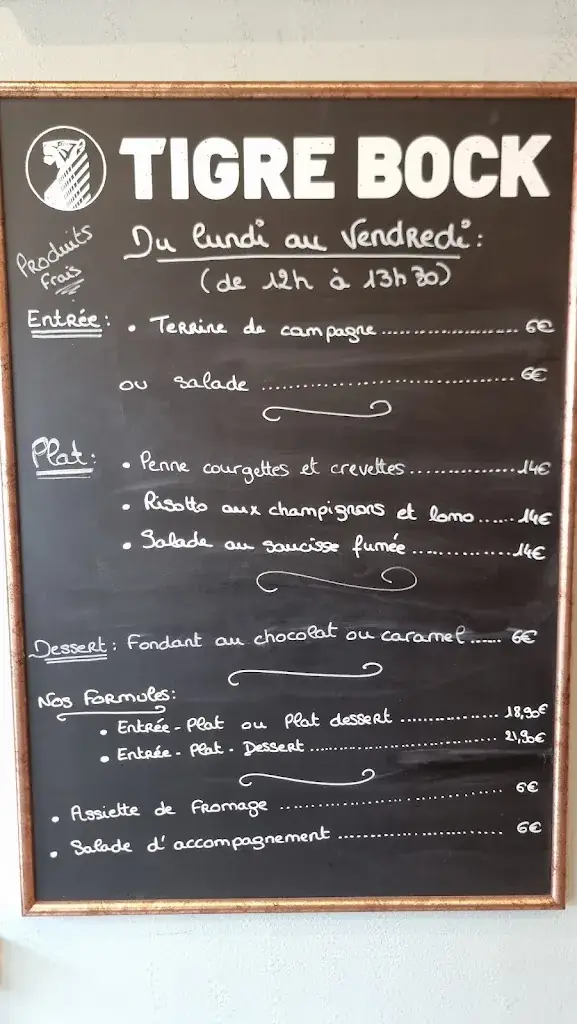 TIGRE BOCK
Produits Frais
Du lundi au Vendredi :
(de 12h à 13h30)
Entrée : • Terrine de campagne ........................ 6€
ou salade ........................ 6€
Plat : • Penne courgettes et crevettes ............... 14€
• Risotto aux champignons et lomo ...... 14€
• Salade au saucisse fumée ............... 14€
Dessert : Fondant au chocolat ou caramel ...... 6€
Nos Formules :
• Entrée - Plat ou Plat dessert ............... 18,90€
• Entrée - Plat - Dessert ........................ 21,90€
• Assiette de Fromage ........................ 6€
• Salade d'accompagnement ........................ 6€